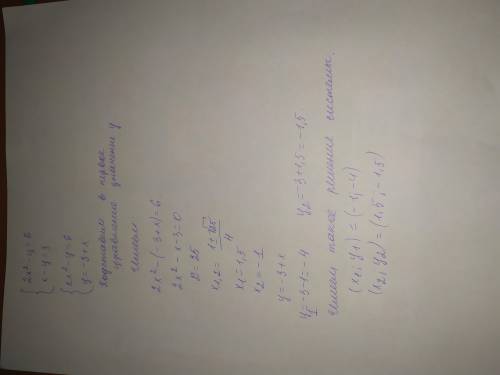 {2x²-y=6
{x-y=3
{2x²-y=6
{y=-3+x
Подставим в первое
уравнение значение y
Имеем
2x²-(-3+x)=6
2x²-x-3=0
D=25
x1,2 = 1±√25 / 4
x1=1,5
x2=-1
y=-3+x
y1=-3-1=-4 y2=-3+1,5=-1,5
Имеем такое решение системы.
(x1; y1) = (-1; -4)
(x2; y2) = (1,5; -1,5)